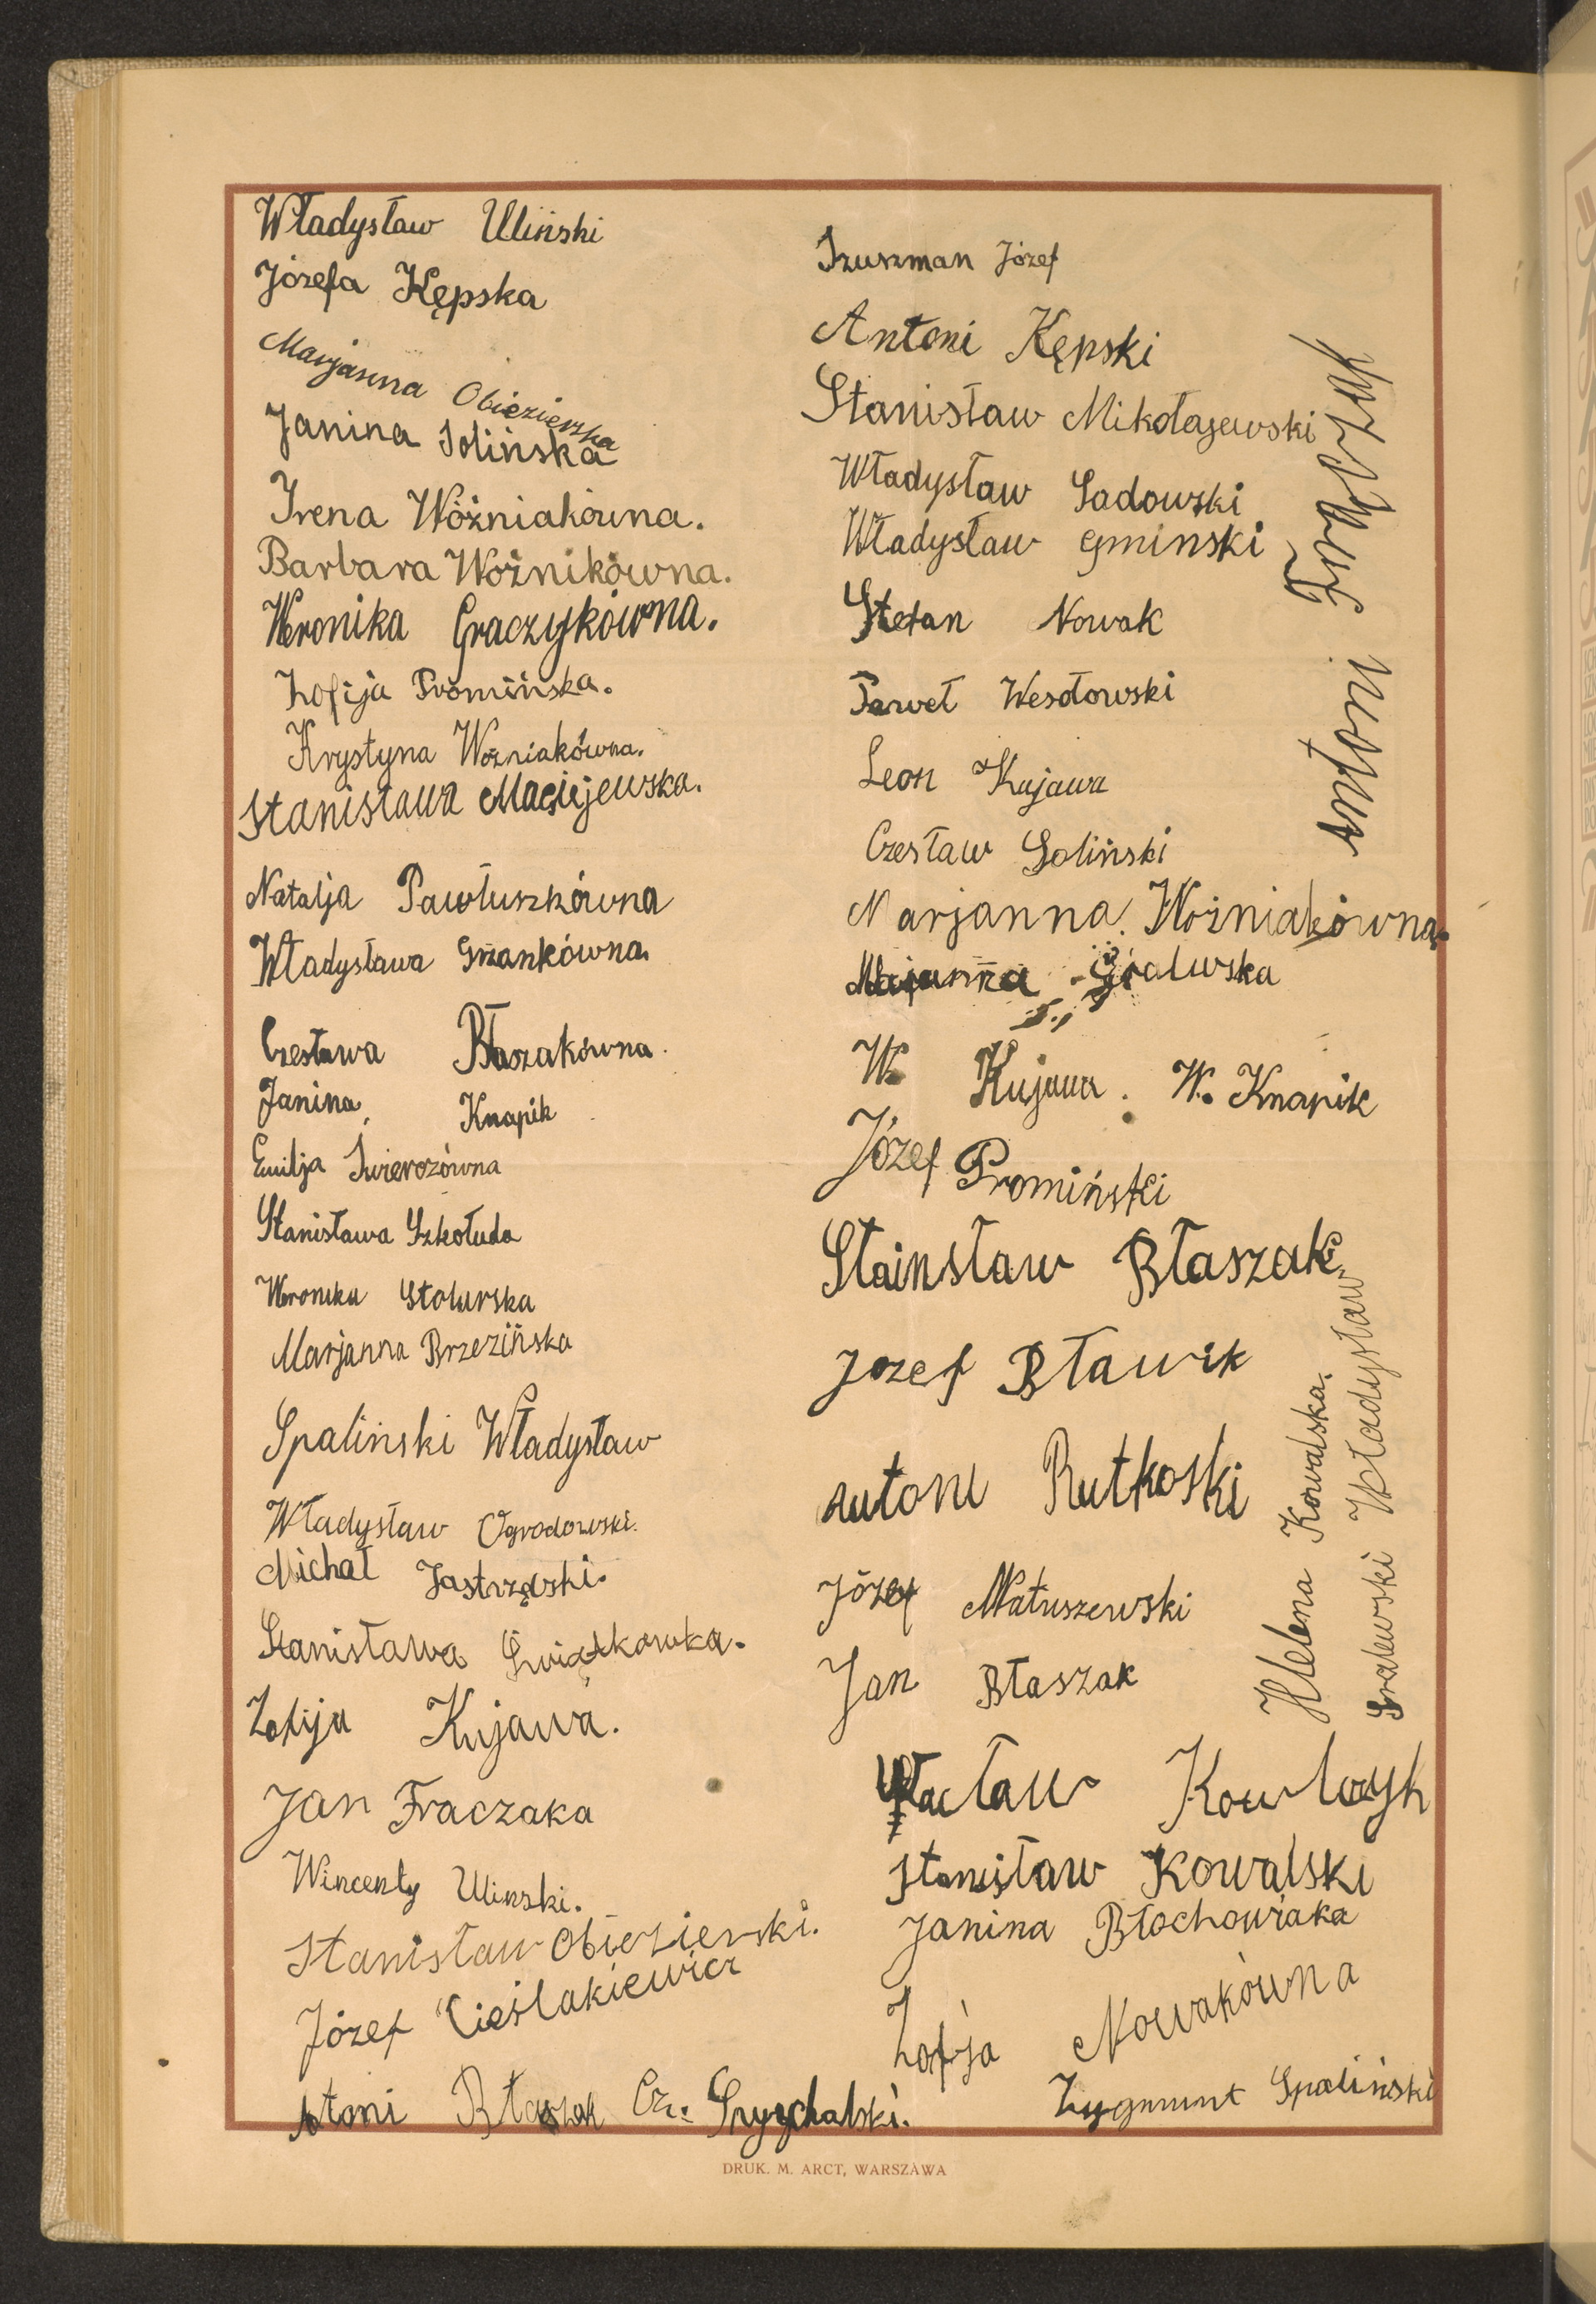 Władysław Uliński
Józefa Kępska
Marjanna Obiezierska
Janina Solińska
Irena Woźniakówna.
Barbara Woźnikówna.
Weronika Graczykówna.
Zofija Promińska.
Krystyna Woźniakówna.
Stanisława Maciejewska.
Natalja Pawłuszkówna
Władysława Grzankówna.
Czesława Błaszakówna.
Janina Knapik
Emilja Świerczówna
Stanisława Szkołuda
Weronika Stolarska
Marjanna Brzezińska
Spaliński Władysław
Władysław Ogrodowski.
Michał
Stanisława
Zofija Kujawa.
Jan Fraczaka
Wincenty Ulinski.
Stanisław Obiezierski.
Józef Cieślakiewicz
Atoni Błaszak Cz. Spychalski.
Szuszman Józef
Antoni Kępski
Stanisław Mikołajewski
Władysław Sadowski
Władysław Gminski
Stefan Nowak
Paweł Wesołowski
Leon Kujawa
Czesław Soliński
Marjanna Woźniakówna.
Góralwska
W. Kujawa. W. Knapik
Józef Promiński
Stainsław Błaszak
Jozef Bławik
Antoni Rutkoski
Józef Matuszewski
Jan Błaszak
Wacław Kowlczyk
Stanisław Kowalski
Janina Błochowiaka
Zofja Nowakówna
Zygmunt Spaliński
Antoni Frączak
Helena Kowalska.
Władysław
DRUK. M. ARCT, WARSZAWA